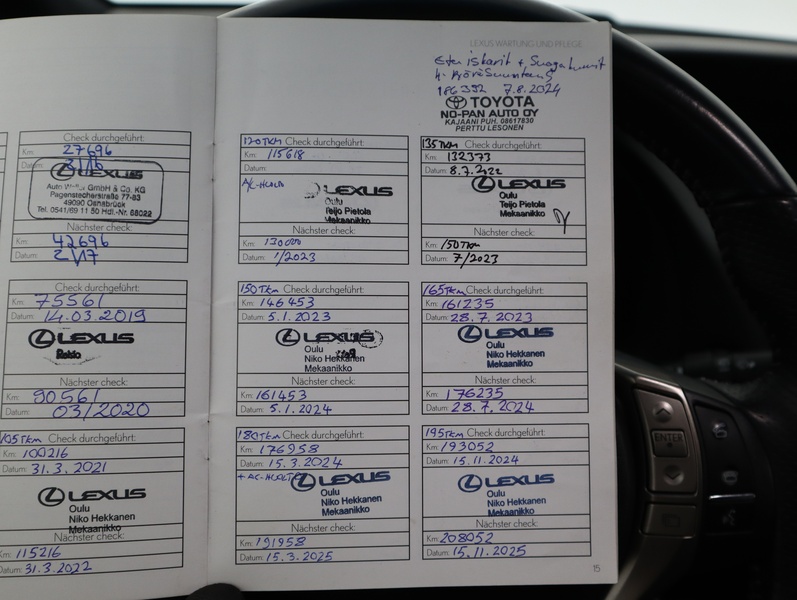 Check durchgeführt:
Km: 27696
Datum: 2/16
LEXUS
Auto Weller GmbH & Co. KG
Pagenstecherstraße 77-83
49090 Osnabrück
Tel. 0541/69 11 50 Hdl.-Nr. 68022
Nächster check:
Km: 42696
Datum: 2/17
Check durchgeführt:
Km: 75561
Datum: 14.03.2019
LEXUS
Nächster check:
Km: 90561
Datum: 03/2020
105TKM Check durchgeführt:
Km: 100216
Datum: 31.3.2021
LEXUS
Oulu
Niko Hekkanen
Mekaanikko
Nächster check:
Km: 115216
Datum: 31.3.2022
LEXUS WARTUNG UND PFLEGE
186392 7.8.2024
TOYOTA
NO-PAN AUTO OY
KAJAANI PUH. 08617830
PERTTU LESONEN
120TKM Check durchgeführt:
Km: 115618
Datum:
A/C-HUOLTO
LEXUS
Oulu
Teijo Pietola
Mekaanikko
Nächster check:
Km: 130000
Datum: 1/2023
135TKM Check durchgeführt:
Km: 132373
Datum: 8.7.2022
LEXUS
Oulu
Teijo Pietola
Mekaanikko
Nächster check:
Km: 150TKM
Datum: 7/2023
150TKM Check durchgeführt:
Km: 146453
Datum: 5.1.2023
LEXUS
Oulu
Niko Hekkanen
Mekaanikko
Nächster check:
Km: 161453
Datum: 5.1.2024
165TKM Check durchgeführt:
Km: 161235
Datum: 28.7.2023
LEXUS
Oulu
Niko Hekkanen
Mekaanikko
Nächster check:
Km: 176235
Datum: 28.7.2024
180TKM Check durchgeführt:
Km: 176958
Datum: 15.3.2024
+ AC-HUOLTO
LEXUS
Oulu
Niko Hekkanen
Mekaanikko
Nächster check:
Km: 191958
Datum: 15.3.2025
195TKM Check durchgeführt:
Km: 193052
Datum: 15.11.2024
LEXUS
Oulu
Niko Hekkanen
Mekaanikko
Nächster check:
Km: 208052
Datum: 15.11.2025
15
ENTER